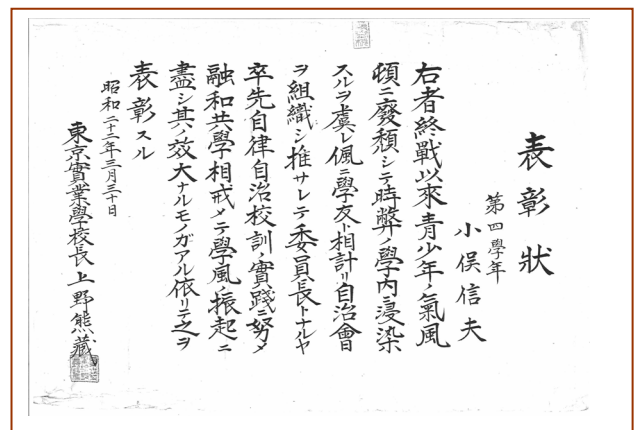 表彰狀
第四學年
小俣信夫
右者終戰以來青少年ノ氣風
頓ニ廢頽シテ時弊ノ學內ニ浸染
スルヲ虞レ偶ニ學友ト相計リ自治會
ヲ組織シ推サレテ委員長トナルヤ
卒先自律自治校訓ノ實踐ニ努メ
融和共學相戒メテ學風ノ振起ニ
盡シ其ノ效大ナルモノガアル依リテ之ヲ
表彰スル
昭和二十二年三月三十日
東京實業學校長上野熊藏